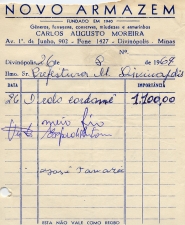 NOVO ARMAZEM
FUNDADO EM 1945
Gêneros, ferragens, conservas, miudezas e armarinhos
CARLOS AUGUSTO MOREIRA
Av. 1º. de Junho, 902 - Fone 1427 - Divinópolis - Minas
Divinópolis, 26 8 de 1969
Ilmo. Sr. Prefeitura M. Divinopolis
DATA IMPORTÂNCIA
26 1 rolo cordoné 1.100,00
meio fio
ESTA NÃO VALE COMO RECIBO